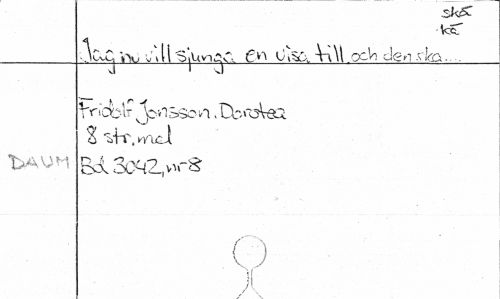 skå
kå
Jag nu vill sjunga en visa till och den ska....
Fridolf Jonsson. Dorotea
8 str, mel
DAUM Bd 3042, nr 8